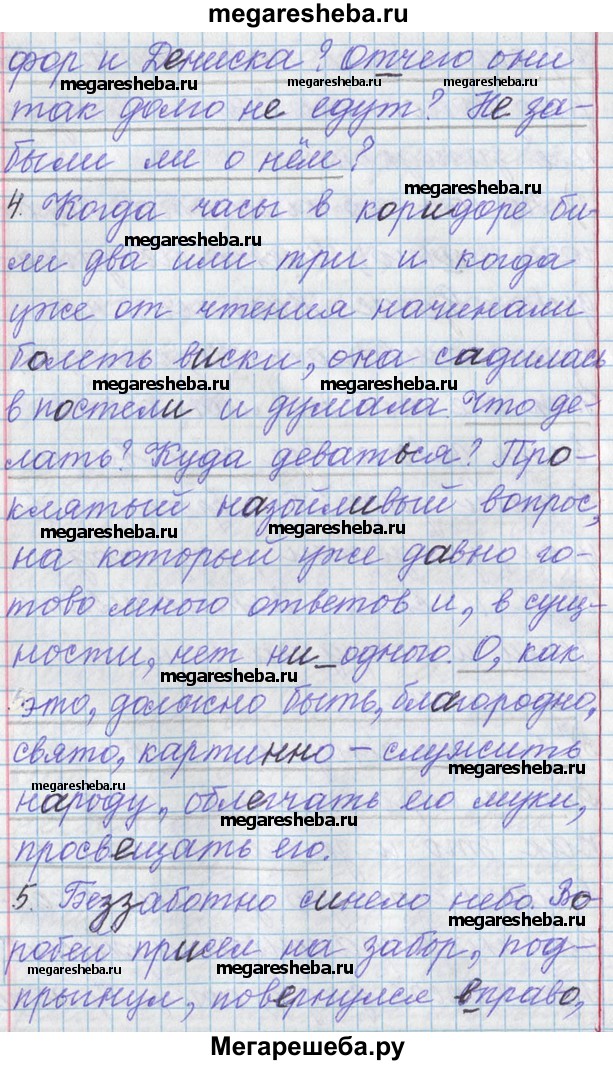 megaresheba.ru
фор и Дениска? Отчего они
megaresheba.ru megaresheba.ru megaresheba.ru
так долго не едут? Не за-
были ли о нём?
megaresheba.ru
4. Когда часы в коридоре би-
megaresheba.ru
ли два или три и когда
уже от чтения начинали
болеть виски, она садилась
megaresheba.ru megaresheba.ru
в постели и думала Что де-
лать? Куда деваться? Про-
клятый назойливый вопрос,
megaresheba.ru megaresheba.ru
на который уже давно го-
тово много ответов и, в сущ-
ности, нет ни_одного. О, как
megaresheba.ru
это, должно быть, благородно,
свято, картинно – служить
megaresheba.ru
megaresheba.ru
народу, облегчать его муки,
megaresheba.ru
просвещать его.
5. Беззаботно синело небо. Во
megaresheba.ru
робей присел на забор, под-
megaresheba.ru megaresheba.ru
прыгнул, повернулся вправо,
Мегарешеба.ру